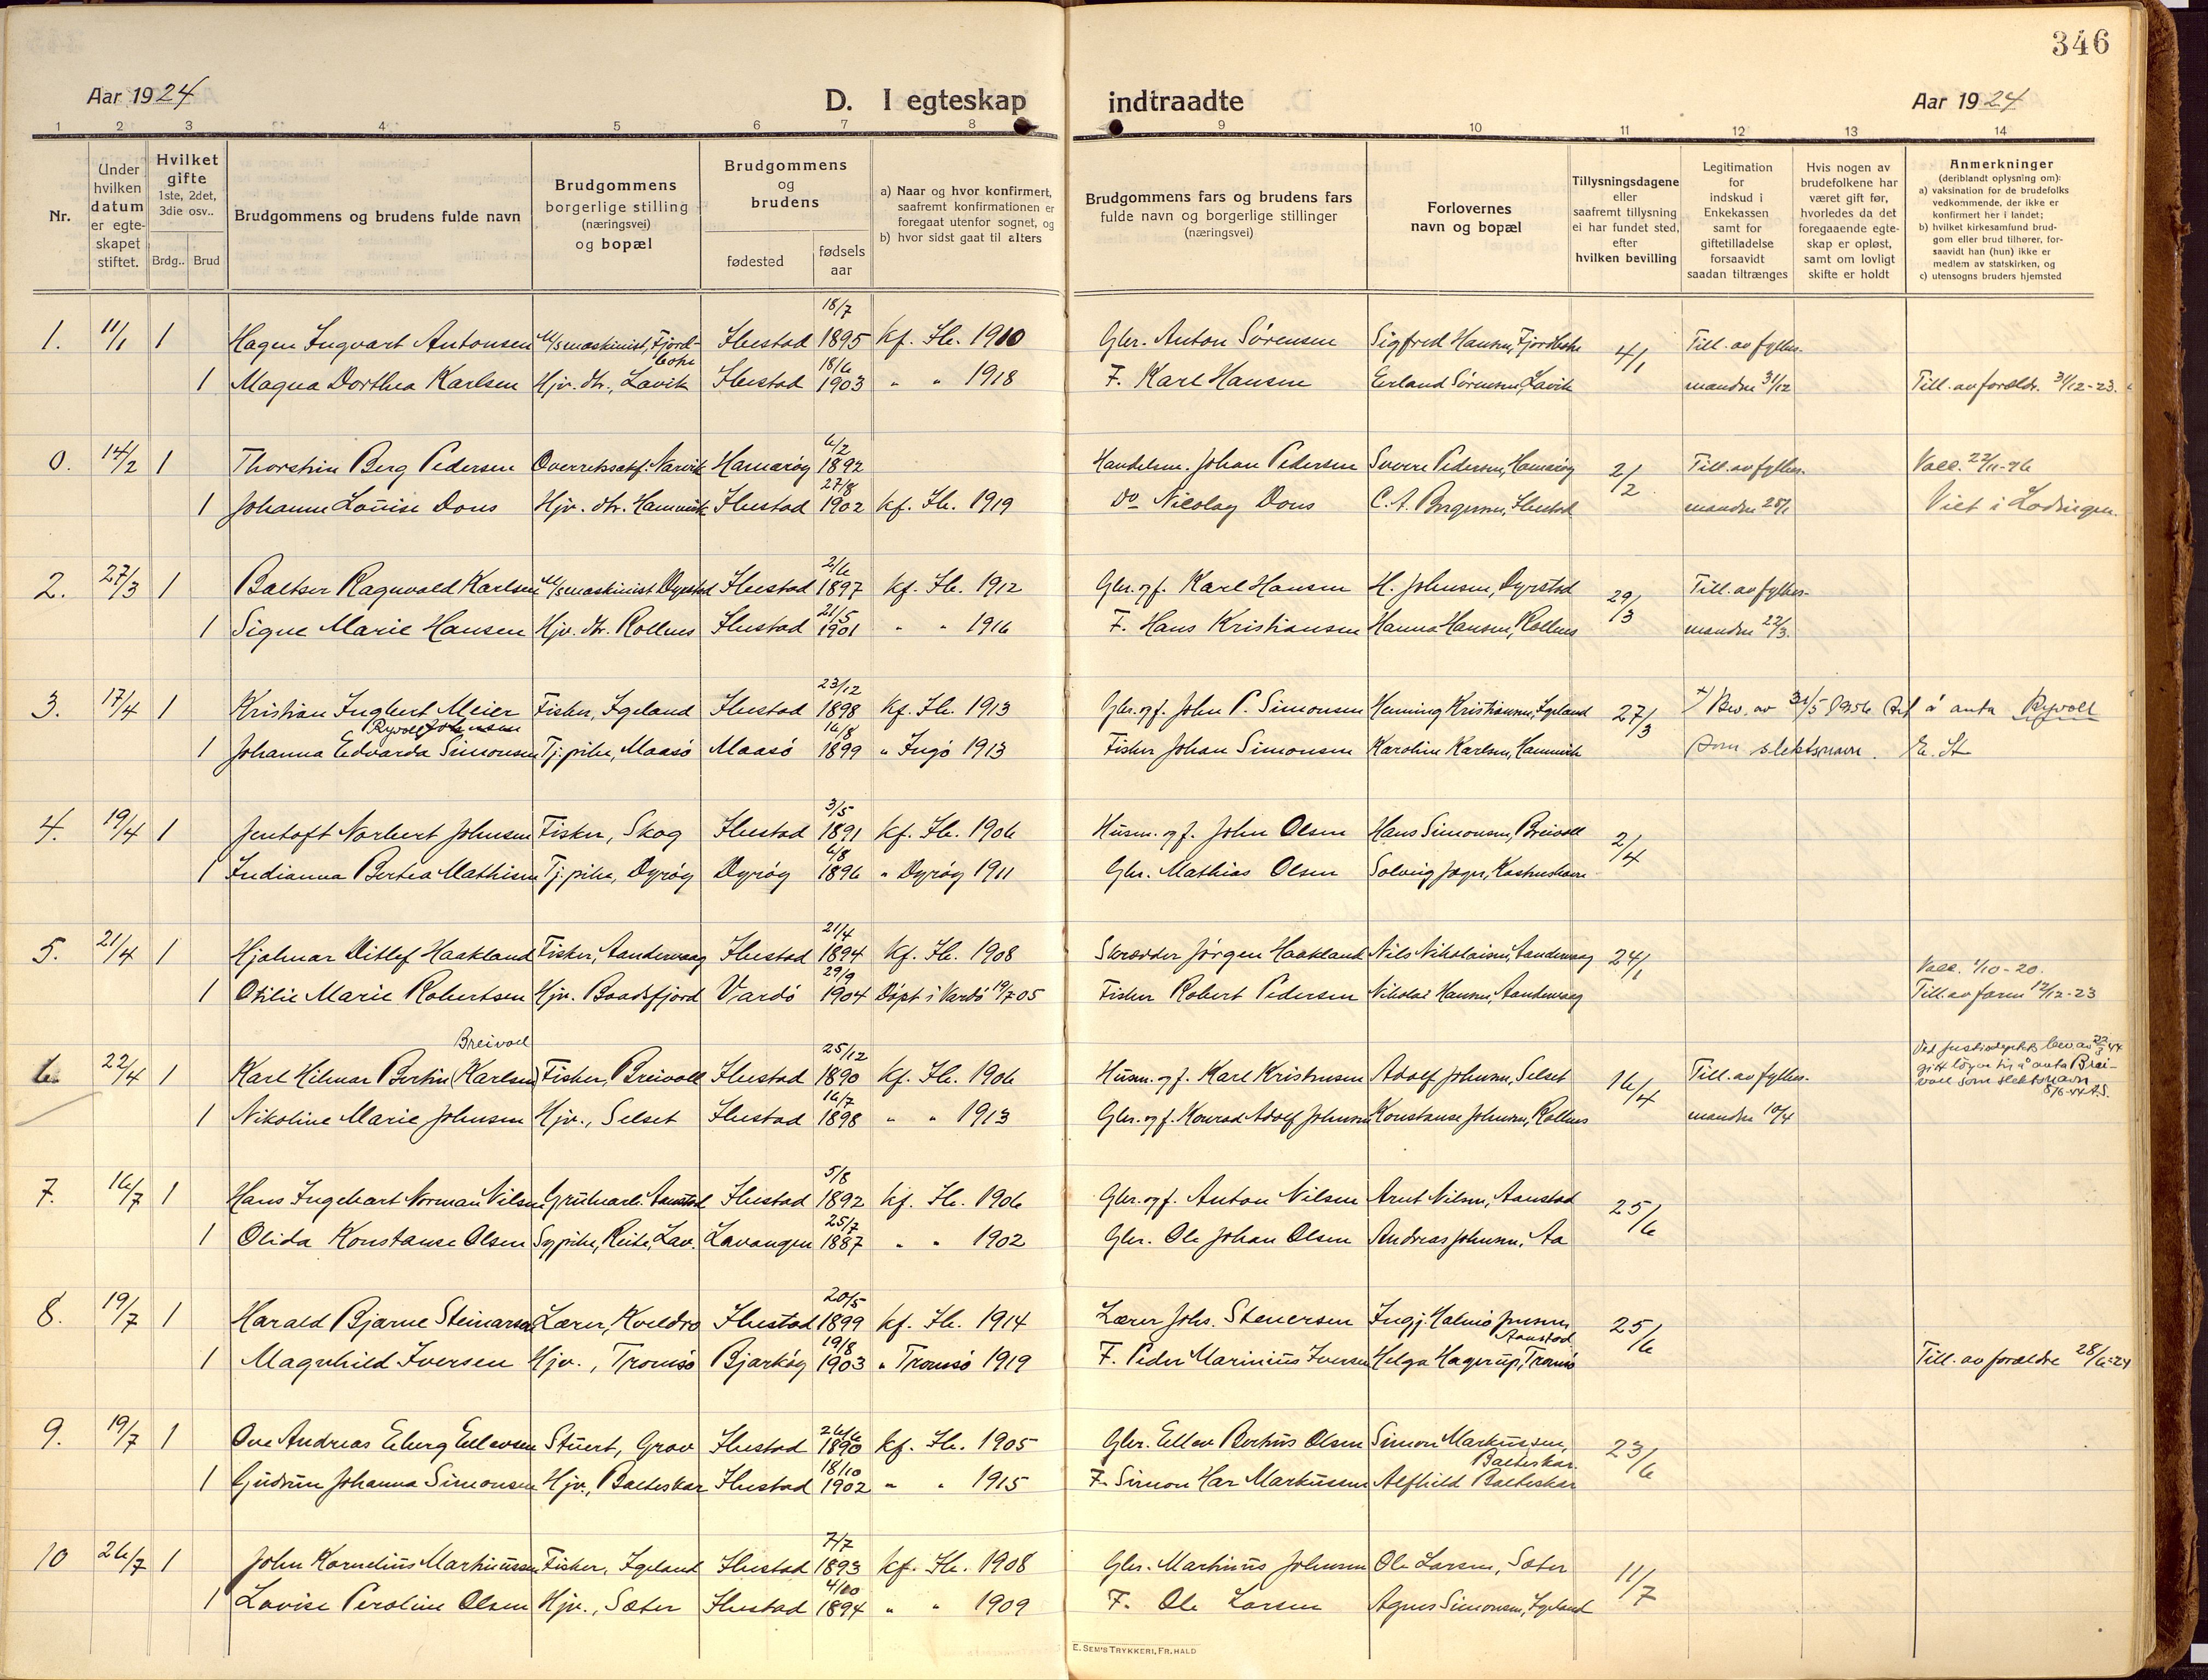 346
Aar 1924
D. I egteskap indtraadte
Aar 1924
1 2 3 4 5 6 7 8 9 10 11 12 13 14
Nr.
Under hvilken datum er egteskapet stiftet.
Hvilket gifte 1ste, 2det, 3die osv..
Brdg..
Brud
Brudgommens og brudens fulde navn
Brudgommens borgerlige stilling (næringsvei) og bopæl
Brudgommens og brudens
fødested
fødsels aar
a) Naar og hvor konfirmert, saafremt konfirmationen er foregaat utenfor sognet, og
b) hvor sidst gaat til alters
Brudgommens fars og brudens fars fulde navn og borgerlige stillinger (næringsvei)
Forlovernes navn og bopæl
Tillysningsdagene eller saafremt tillysning ei har fundet sted, efter hvilken bevilling
Legitimation for indskud i Enkekassen samt for giftetilladelse forsaavidt saadan tiltrænges
Hvis nogen av brudefolkene har været gift før, hvorledes da det foregaaende egteskap er opløst, samt om lovligt skifte er holdt
Anmerkninger (deriblandt oplysning om):
a) vaksination for de brudefolks vedkommende, der ikke er konfirmert her i landet;
b) hvilket kirkesamfund brudgom eller brud tilhører, forsaavidt han (hun) ikke er medlem av statskirken, og
c) utensogns bruders hjemsted
1. 11/1 1 Hagen Ingvart Antonsen M/s maskinist, Fjordbotn Ibestad 18/7 1895 kf. Ib. 1910 Gbr. Anton Sørensen Sigfred Hansen, Fjordbotn 4/1 Till. av fylkes-
1 Magna Dorthea Karlsen Hjv. dtr., Lavik Ibestad 18/6 1903 " " 1918 F. Karl Hansen Erland Sørensen, Lavik manden 31/12 Till. av forældr. 31/12-23.
0. 14/2 1 Thorstein Berg Pedersen Overretssakf. Narvik Hamarøy 6/2 1892 Handelsm. Johan Pedersen Sverre Pedersen, Hamarøy 2/2 Till. av fylkes- Vacc. 22/11-96
1 Johanne Louise Dons Hjv. dtr. Hamnvik Ibestad 27/8 1902 kf. Ib. 1919 Do Nicolay Dons C. A. Borgersen, Ibestad manden 25/1 Viet i Lødingen.
2. 27/3 1 Baltser Ragnvald Karlsen M/s maskinist Dyrstad Ibestad 2/6 1897 kf. Ib. 1912 Gbr. og f. Karl Hansen H. Johnsen, Dyrstad 29/3 Till. av fylkes-
1 Signe Marie Hansen Hjv. dtr. Rollnes Ibestad 21/5 1901 " " 1916 F. Hans Kristiansen Hanna Hansen, Rollnes manden 22/3.
3. 17/4 1 Kristian Ingbert Meier Fisker, Igeland Ibestad 23/12 1898 kf. Ib. 1913 Gbr. og f. John P. Simonsen Henning Kristiansen, Igeland 27/3 x) Bev. av 31/5 1956 til å anta Ryvoll
Ryvoll Johnsen
1 Johanna Edvarda Simonsen Tj. pike, Maasø Maasø 16/8 1899 " Ingø 1913 Fisker Johan Simonsen Karoline Karlsen, Hamnvik som slektsnavn. E. St
4. 19/4 1 Jentoft Norbert Johnsen Fisker, Skog Ibestad 3/5 1891 kf. Ib. 1906 Husm. og f. John Olsen Hans Simonsen, Breivoll 2/4
1 Indianna Bertea Mathisen Tj. pike, Dyrøy Dyrøy 6/8 1896 " Dyrøy 1911 Gbr. Mathias Olsen Solveig Jager, Kastneshavn
5. 21/4 1 Hjalmar Ditlef Haakland Fisker, Aandervaag Ibestad 21/4 1894 kf. Ib. 1908 Skrædder Jørgen Haakland Nils Nikolaisen, Aandervaag 24/1 Vacc. 1/10-20.
1 Otilie Marie Robertsen Hjv. Baadsfjord Vardø 29/9 1904 Døpt i Vardø 19/7 05 Fisker Robert Pedersen Nikolai Hansen, Aandervaag Till. av farm 12/12-23
Breivoll
6. 22/4 1 Karl Hilmar Bertin (Karlsen) Fisker, Breivoll Ibestad 25/12 1890 kf. Ib. 1906 Husm. og f. Karl Kristensen Adolf Johnsen, Selset 16/4 Till. av fylkes- gitt løyve til å anta Breivoll som slektsnavn
1 Nikoline Marie Johnsen Hjv., Selset Ibestad 16/7 1898 " " 1913 Gbr. og f. Konrad Adolf Johnsen Konstanse Johnsen, Rollnes manden 10/4
7. 16/7 1 Hans Ingebart Norman Nilsen Grubearb. Aanstad Ibestad 5/8 1892 kf. Ib. 1906 Gbr. og f. Anton Nilsen Arnt Nilsen, Aanstad 25/6
1 Olida Konstanse Olsen Sypike, Lav. Lavangen 25/7 1887 " " 1902 Gbr. Ole Johan Olsen Andreas Johnsen, Aa
8. 19/7 1 Harald Bjarne Steinarsen Lærer, Kveldro Ibestad 20/5 1899 kf. Ib. 1914 Lærer Johs. Stenersen Ingj. Aanstad 25/6
1 Magnhild Iversen Hjv., Tromsø Bjarkøy 19/8 1903 " Tromsø 1919 F. Peder Marinius Iversen Helga Hagerup, Tromsø Till. av forældre 28/6-24
9. 19/7 1 Ove Andreas Eberg Ellevsen Stuert, Grov Ibestad 26/6 1890 kf. Ib. 1905 Gbr. Ellev Bertius Olsen Simon Markussen, Balteskar 23/6
1 Gudrun Johanna Simonsen Hjv., Balteskar Ibestad 18/10 1902 " " 1915 F. Simon Har Markussen Alfhild Balteskar
10 26/7 1 John Kornelius Martinussen Fisker, Igeland Ibestad 7/7 1893 kf. Ib. 1908 Gbr. Martinus Johnsen Ole Larsen, Sæter 11/7
1 Lovise Peroline Olsen Hjv., Sæter Ibestad 4/10 1894 " " 1909 F. Ole Larsen Agnes Simonsen, Igeland
E. SEM'S TRYKKERI, FR. HALD